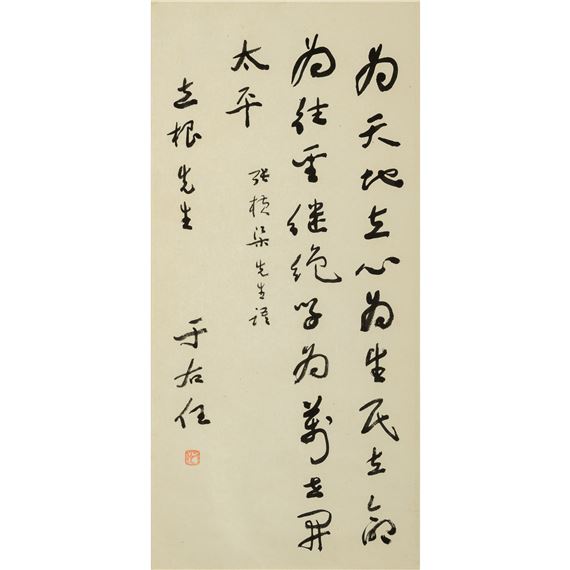 為天地立心為生民立命
為往聖繼絕學為萬世開
太平
張橫渠先生語
立根先生
于右任